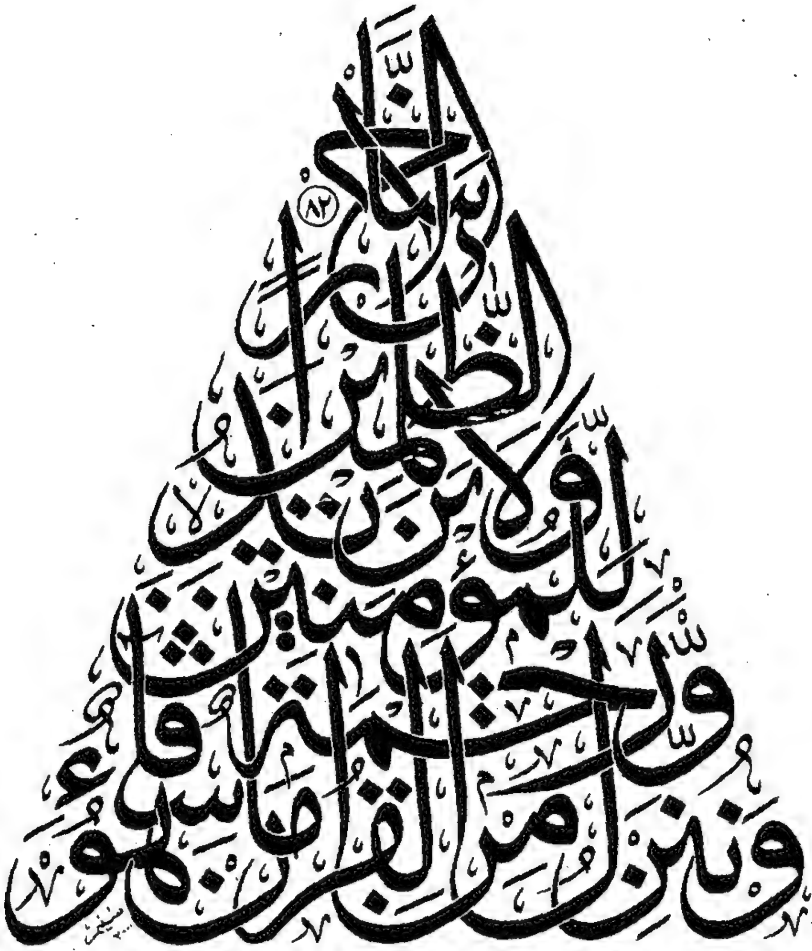 وَنُنَزِّلُ مِنَ الْقُرْاٰنِ مَا هُوَ شِفَآءٌ
وَّرَحْمَةٌ
لِّلْمُؤْمِنِيْنَ
وَلَا يَزِيْدُ
الظّٰلِمِيْنَ
اِلَّا خَسَارًا
۸۲